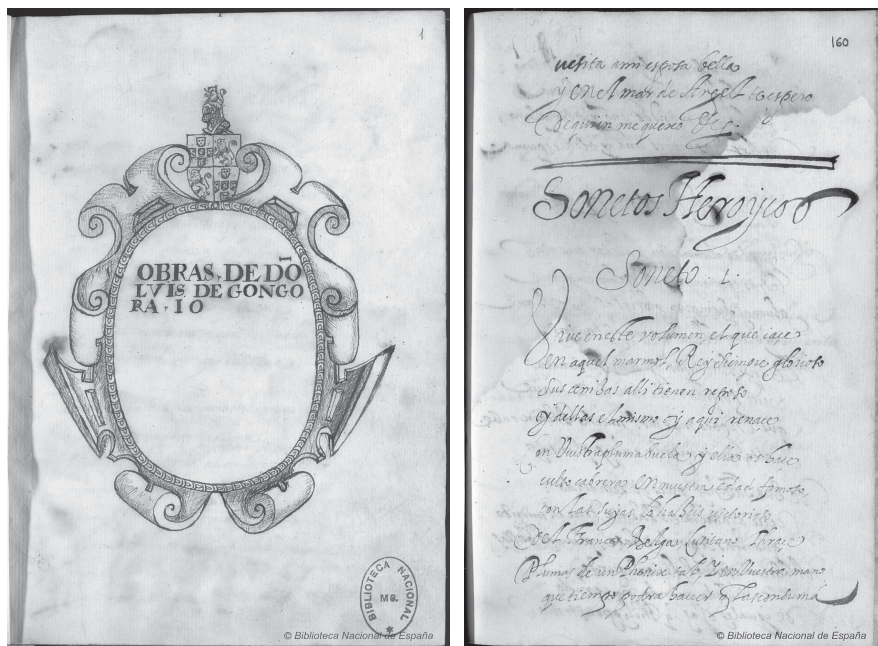 1
OBRAS. DE DÕ
LVIS. DE GONGO
RA . IO
BIBLIOTECA NACIONAL
MS.
© Biblioteca Nacional de España
160
visita a mi esposa bella
y en el mar de Argel te espero
De quien me quexo &c.
Sonetos Heroycos
Soneto . 1.
Vive en este volumen el que iace
en aquel marmol, Rey siempre glorioso
sus cenizas alli tienen reposo
y dellas el mismo oy aqui renace
con vuestra pluma buela, y ella os hace
culto cabrera en nuestra edad famoso
con las suyas le haveis victorioso
del Frances, Belga, Lusitano, Thrace
Plumas de un Phenix tal, y en vuestra mano
que tiempo podra haver que las consuma
© Biblioteca Nacional de España